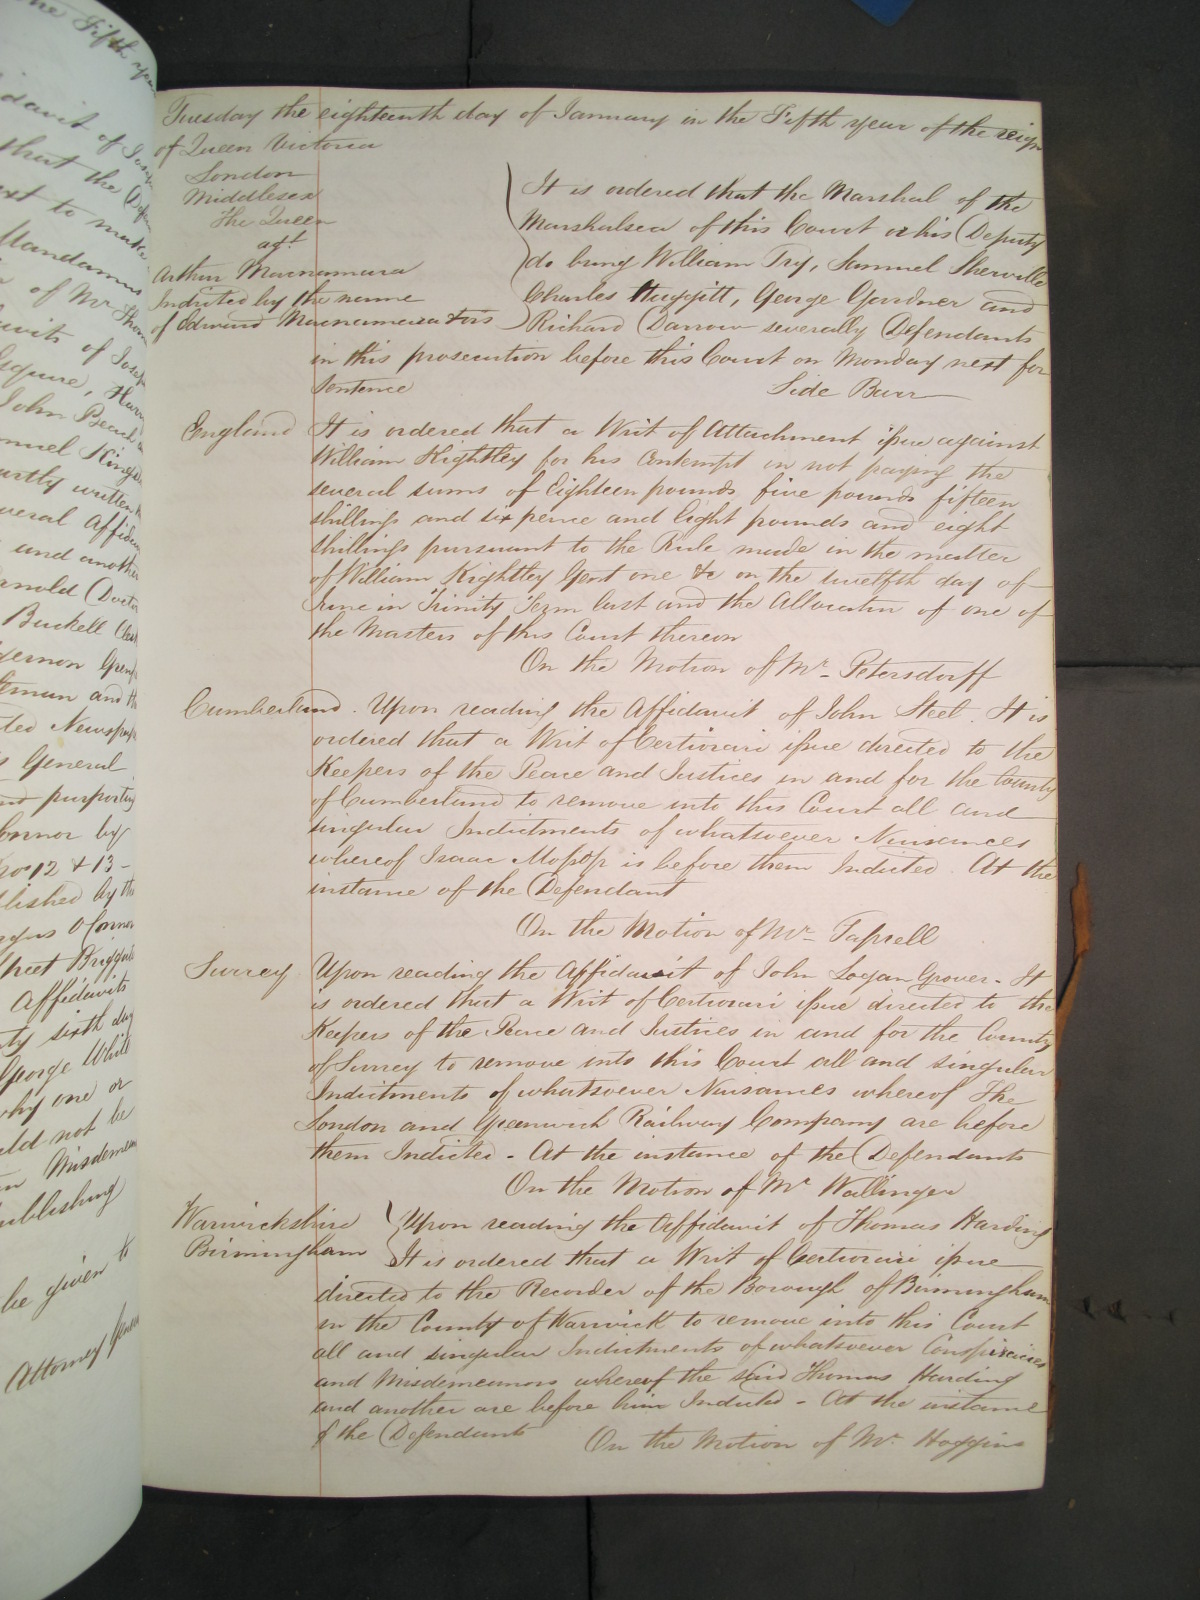 one Fifth year
davit of
that the
ext to make
Mandamus
of Mr
davits of Joseph
Esquire,
John Beach
muel Kings
partly written
veral Affidav
and another
Arnold (Doctor
Buckell
tleman and
ted Newspap
General
purporting
Connor by
Nos 12 & 13 -
blished by the
O Connor
Street Briggate
Affidavits
ty sixth day
George White
why one or
uld not be
in Misdemean
publishing
be given to
Attorney General
Tuesday the eighteenth day of January in the Fifth year of the reign
of Queen Victoria
London
Middlesex
The Queen
agt
Arthur Macnamara
Indicted by the name
of Edward Macnamara & ors
It is ordered that the Marshal of the
Marshalsea of this Court or his Deputy
do bring William Try, Samuel Sherville
Charles Huggitt, George Gardner and
Richard Darrow severally Defendants
in this prosecution before this Court on Monday next for
Sentence Side Barr
England It is ordered that a Writ of Attachment issue against
William Kightley for his Contempt in not paying the
several sums of Eighteen pounds, five pounds fifteen
shillings and six pence and Eight pounds and eight
shillings pursuant to the Rule made in the matter
of William Kightley Gent one &c on the twelfth day of
June in Trinity Term last and the Allocatur of one of
the Masters of this Court thereon
On the Motion of Mr Petersdorff
Cumberland. Upon reading the Affidavit of John Steel. It is
ordered that a Writ of Certiorari issue directed to the
Keepers of the Peace and Justices in and for the County
of Cumberland to remove into this Court all and
singular Indictments of whatsoever Nuisances
whereof Isaac Mossop is before them Indicted. At the
instance of the Defendant
On the Motion of Mr Taprell
Surrey Upon reading the Affidavit of John Logan Grover - It
is ordered that a Writ of Certiorari issue directed to the
Keepers of the Peace and Justices in and for the County
of Surrey to remove into this Court all and singular
Indictments of whatsoever Nuisances whereof The
London and Greenwich Railway Company are before
them Indicted - At the instance of the Defendants
On the Motion of Mr Wallinger
Warwickshire
Birmingham
Upon reading the Affidavit of Thomas Harding
It is ordered that a Writ of Certiorari issue
directed to the Recorder of the Borough of Birmingham
in the County of Warwick to remove into this Court
all and singular Indictments of whatsoever Conspiracies
and Misdemeanors whereof the said Thomas Harding
and another are before him Indicted - At the instance
of the Defendants On the Motion of Mr Hoggins